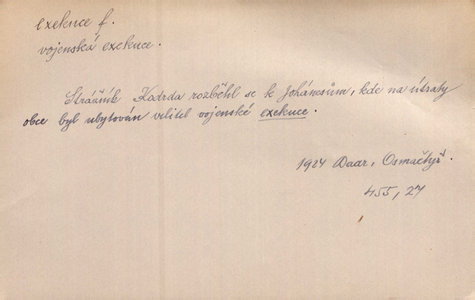 exekuce f.
vojenská exekuce.
Strážník Kadrda rozběhl se k Johánesům, kde na útraty
obce byl ubytován velitel vojenské exekuce.
1927 Daar, Osmačtyř.
455, 27